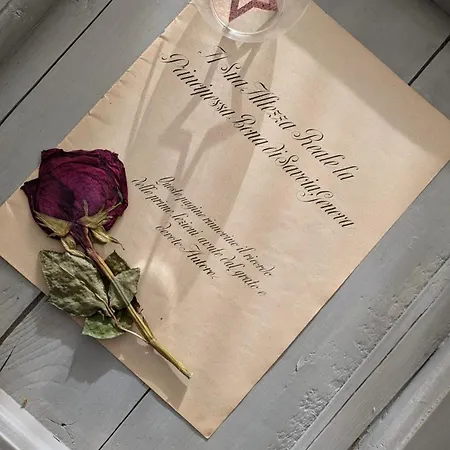 A Sua Altezza Reale la
Principessa Bona di Savoia Genova
Queste pagine rinnovino il ricordo
delle prime lezioni avute dal grato e
devoto Autore.